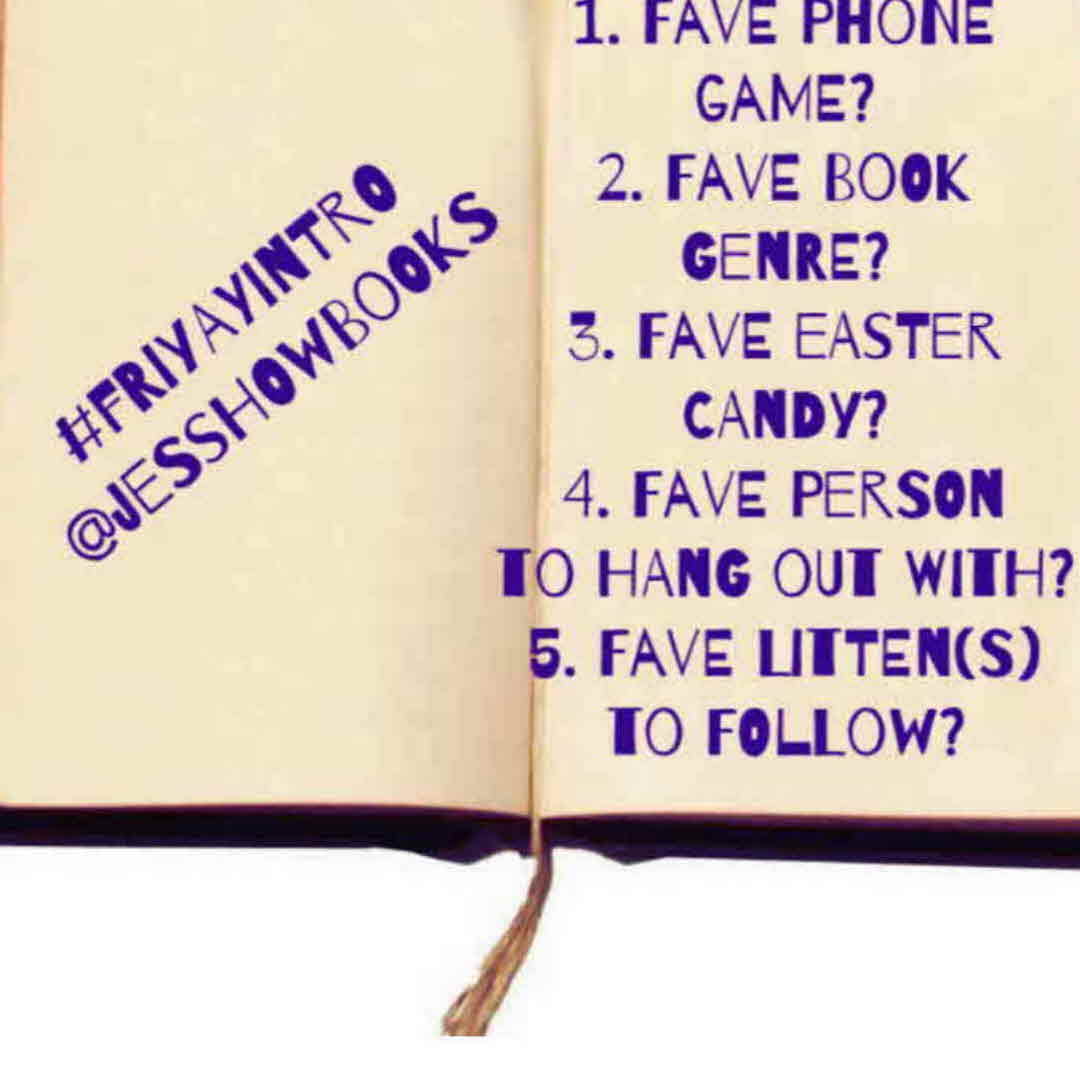 #FRIYAYINTRO
@JESSHOWBOOKS
1. FAVE PHONE
GAME?
2. FAVE BOOK
GENRE?
3. FAVE EASTER
CANDY?
4. FAVE PERSON
TO HANG OUT WITH?
5. FAVE LITTEN(S)
TO FOLLOW?